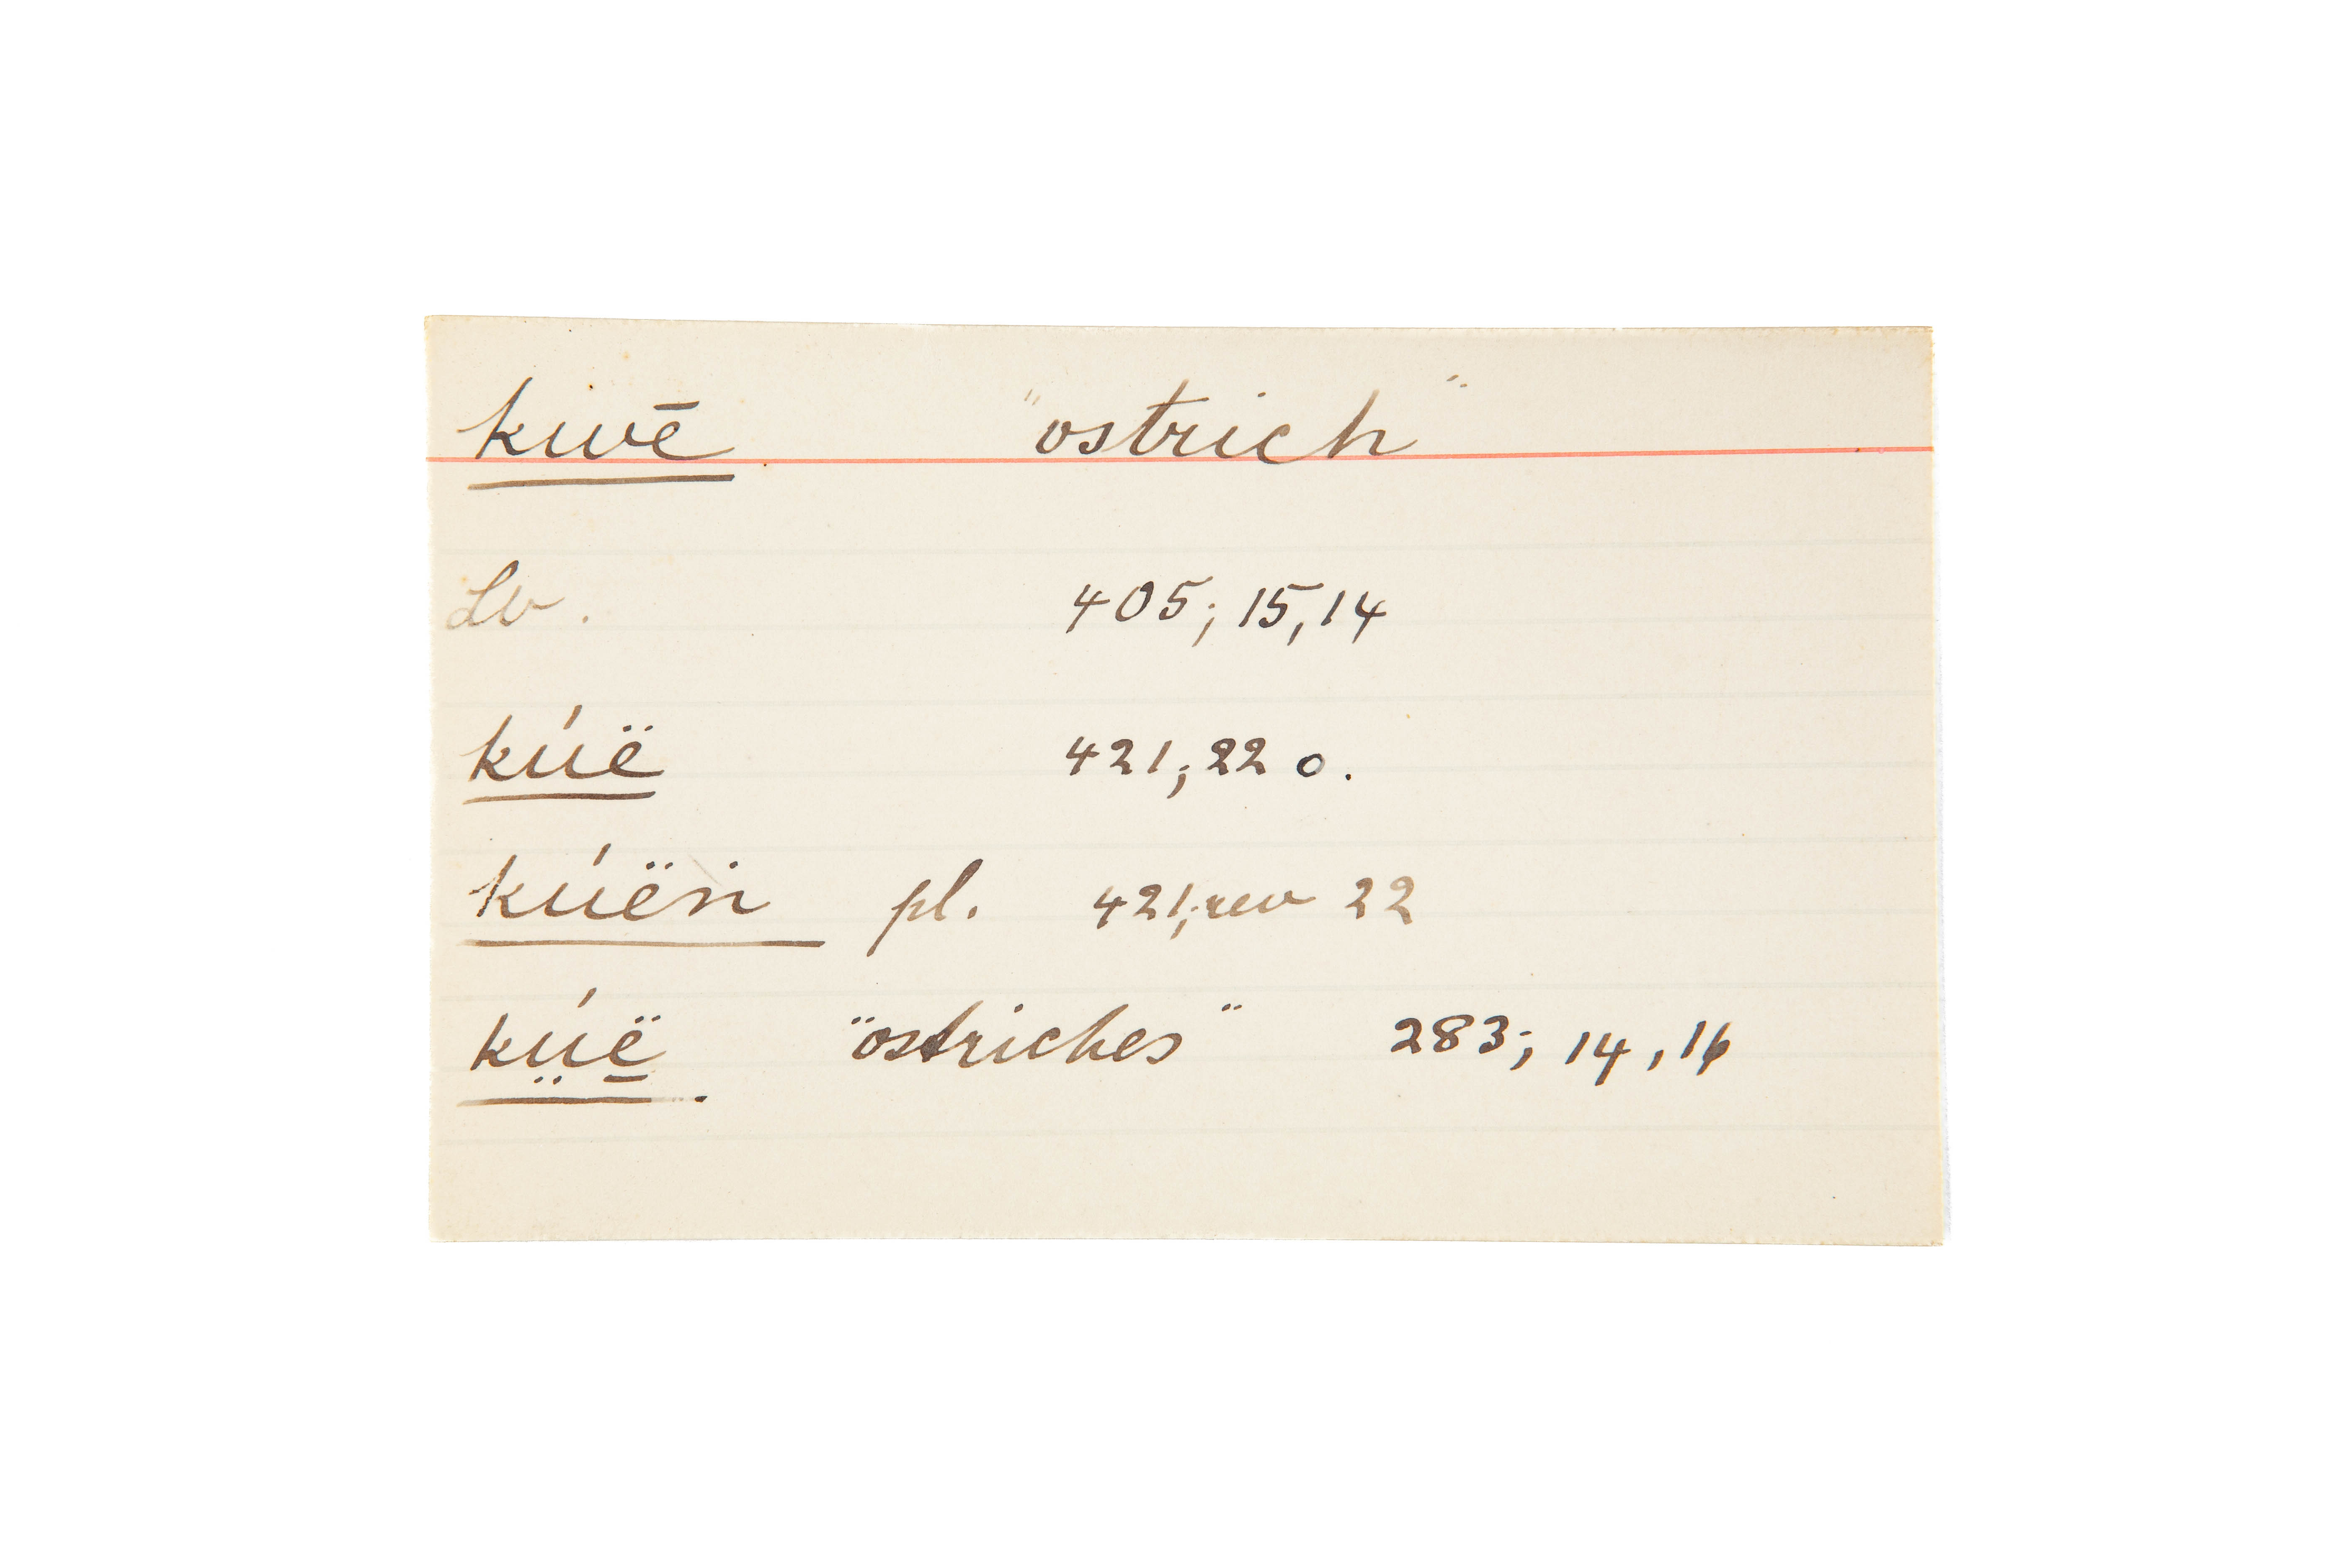 kwē "ostrich"
Lv. 405; 15, 14
kúë 421; 22 o.
kúëṅ pl. 421; rev 22
kṳ́ë̱ "ostriches" 283; 14, 16